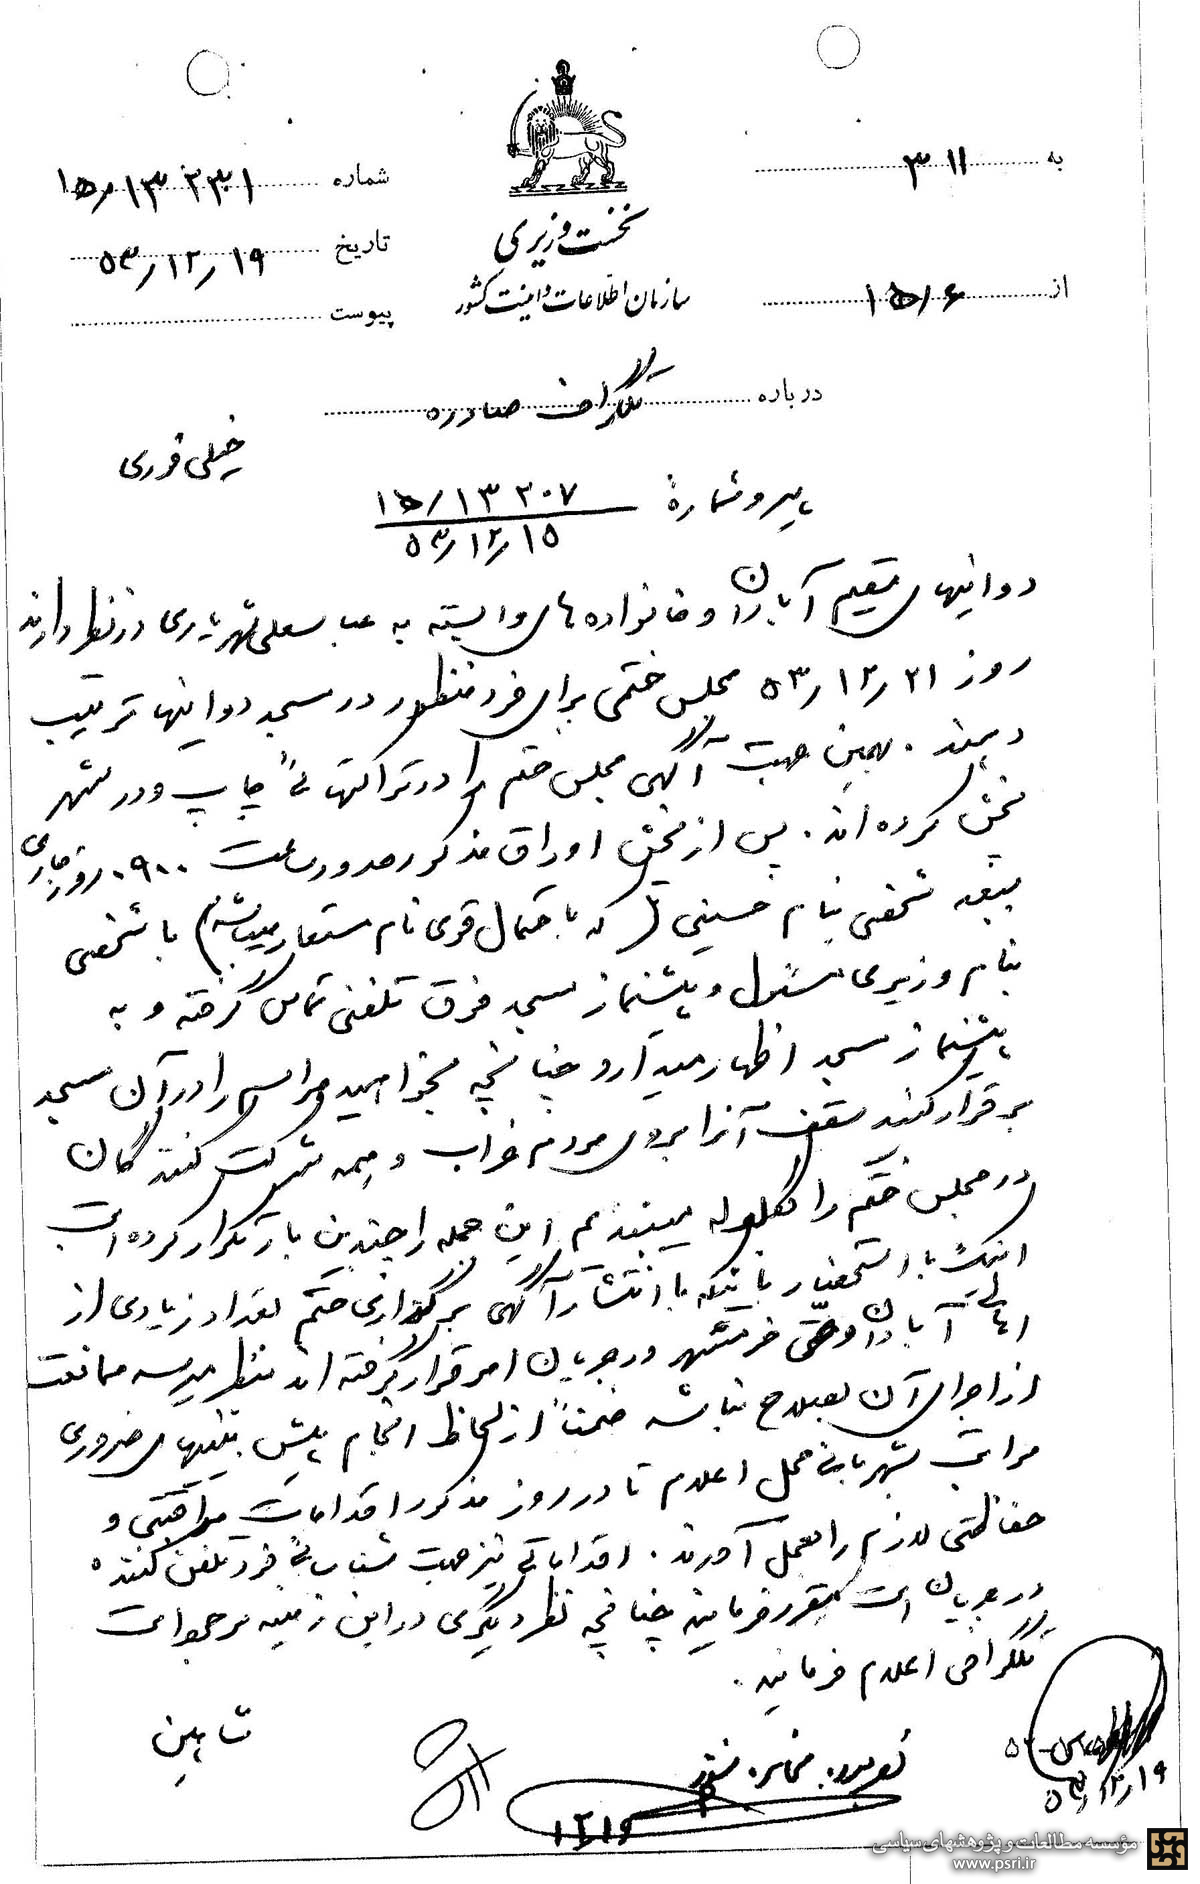 به ۳۱۱
شماره ۱۵/۱۳۲۳۱
نخست وزیری
تاریخ ۵۳/۱۲/۱۹
سازمان اطلاعات و امنیت کشور
از ۱۵/۶
پیوست
درباره تلگراف صادره
خیلی فوری
پیرو شماره ۱۵/۱۳۲۰۷
۵۳/۱۲/۱۵
دوانیهای مقیم آبادان و خانواده های وابسته به عباسعلی شهریاری در نظر دارند
روز ۵۳/۱۲/۲۱ مجلس ختمی برای فرد منظور در مسجد دوانیها ترتیب
دهند. بهمین جهت آگهی مجلس ختم را در تراکتهائی چاپ و در شهر
پخش کرده اند. پس از پخش اوراق مذکور در ساعت ۰۹۰۰ روز جاری
شخصی بنام حسینی (که باحتمال قوی نام مستعار میباشد) با شخصی
بنام وزیری مسئول و پیشنماز مسجد فوق تلفنی تماس گرفته و به
پیشنماز مسجد اظهار میدارد چنانچه بخواهید مراسم را در آن مسجد
برقرار کنید سقف آنرا بروی مردم خراب و همه شرکت کنندگان
در مجلس ختم را بگلوله میبندیم این جمله را چندین بار تکرار کرده است
اینک با استحضار باینکه با انتشار آگهی برگزاری ختم تعداد زیادی از
اهالی آبادان و حتی خرمشهر در جریان امر قرار گرفته اند بنظر میرسد ممانعت
از اجرای آن بصلاح نباشد ضمناً از لحاظ انجام پیش بینیهای ضروری
مراتب بشهربانی محل اعلام تا در روز مذکور اقدامات مراقبتی و
حفاظتی لازم را بعمل آورند. اقداماتی نیز جهت شناسائی فرد تلفن کننده
در جریان است مقرر فرمایید چنانچه نظر دیگری در این زمینه مرجو است
تلگرافی اعلام فرمایند.
شاهین
۱۲/۱۹
۵۳/۱۲/۱۹
مؤسسه مطالعات و پژوهشهای سیاسی
www.psri.ir